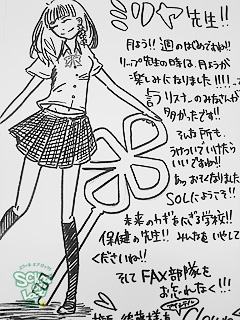 先生!!
月よう!! 週のはじめですね!!
リップ先生の時は、月ようが
楽しみになりました!!!!って
言うリスナーのみなさんが
多かったです!!
そんな所も
うけついで行けたら
いいですね!!
あっ おそくなりました
SOLにようこそ!!
未来のカギをにぎる学校!!
保健の先生!! みんなをいやして
くださいね!!
そして FAX部隊を
おそれなく!!!